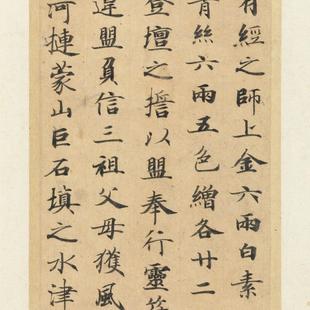 有經之師上金六兩白素
青絲六兩五色繒各廿二
登壇之擔以盟奉行靈
違盟負信三祖父母獲風
河摙蒙山巨石塡之水津